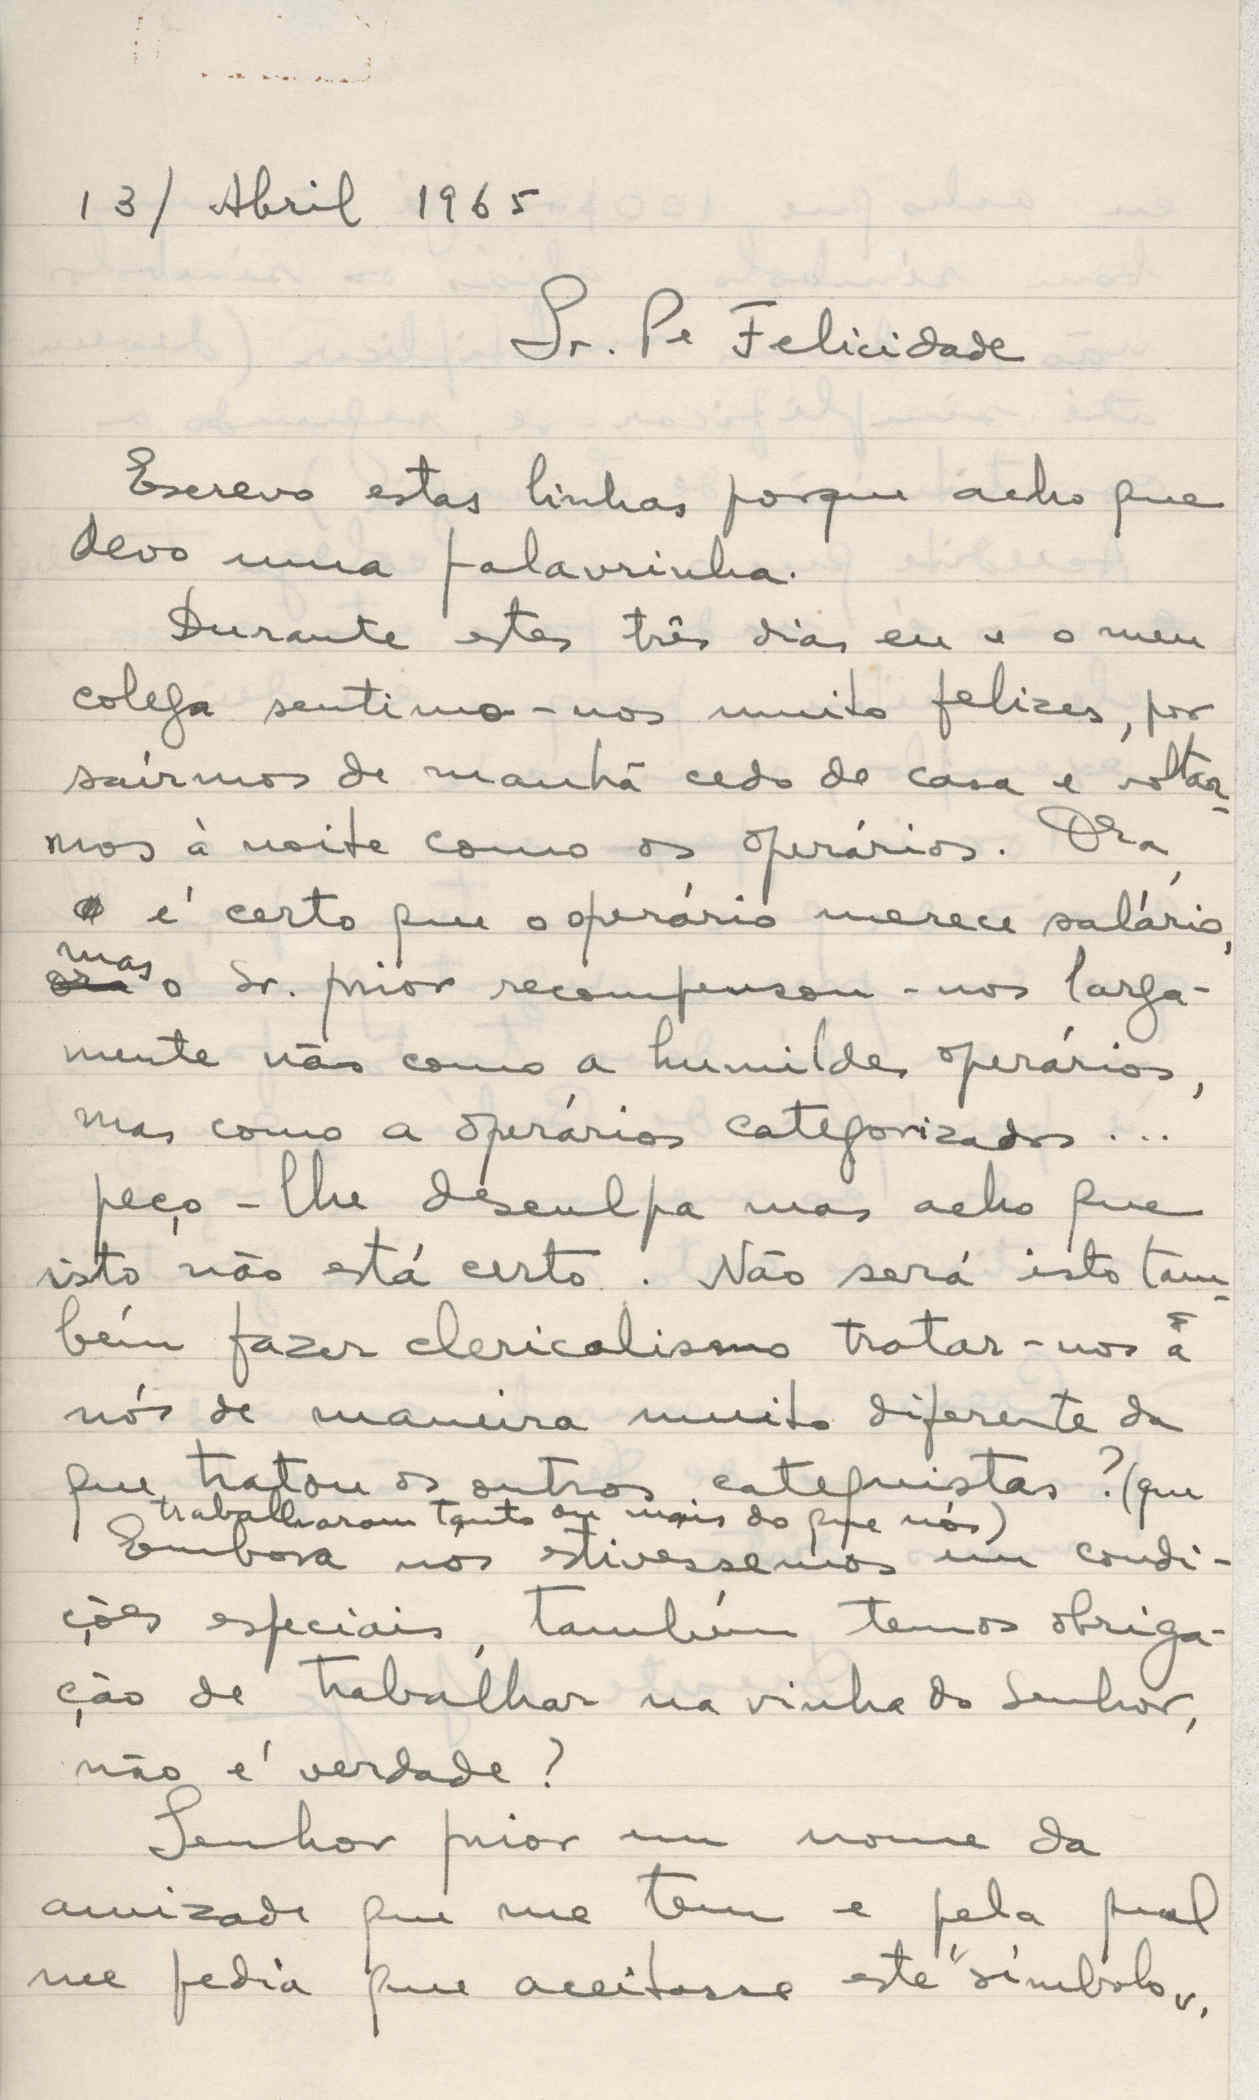 13/ Abril 1965
Sr. Pe Felicidade
Escrevo estas linhas porque acho que
devo uma palavrinha.
Durante estes três dias eu e o meu
colega sentimo-nos muito felizes, por
saírmos de manhã cedo de casa e voltar-
mos à noite como os operários. Ora,
é certo que o operário merece salário,
mas
ora o Sr. prior recompensou-nos larga-
mente não como a humildes operários,
mas como a operários categorizados...
peço-lhe desculpa mas acho que
isto não está certo. Não será isto tam-
bém fazer clericalismo tratar-nos a
nós de maneira muito diferente da
que tratou os outros catequistas? (que
trabalharam tanto ou mais do que nós)
Embora nós estivessemos em condi-
ções especiais, também temos obriga-
ção de trabalhar na vinha do Senhor,
não é verdade?
Senhor prior em nome da
amizade que me tem e pela qual
me pedia que aceitasse este "símbolo",